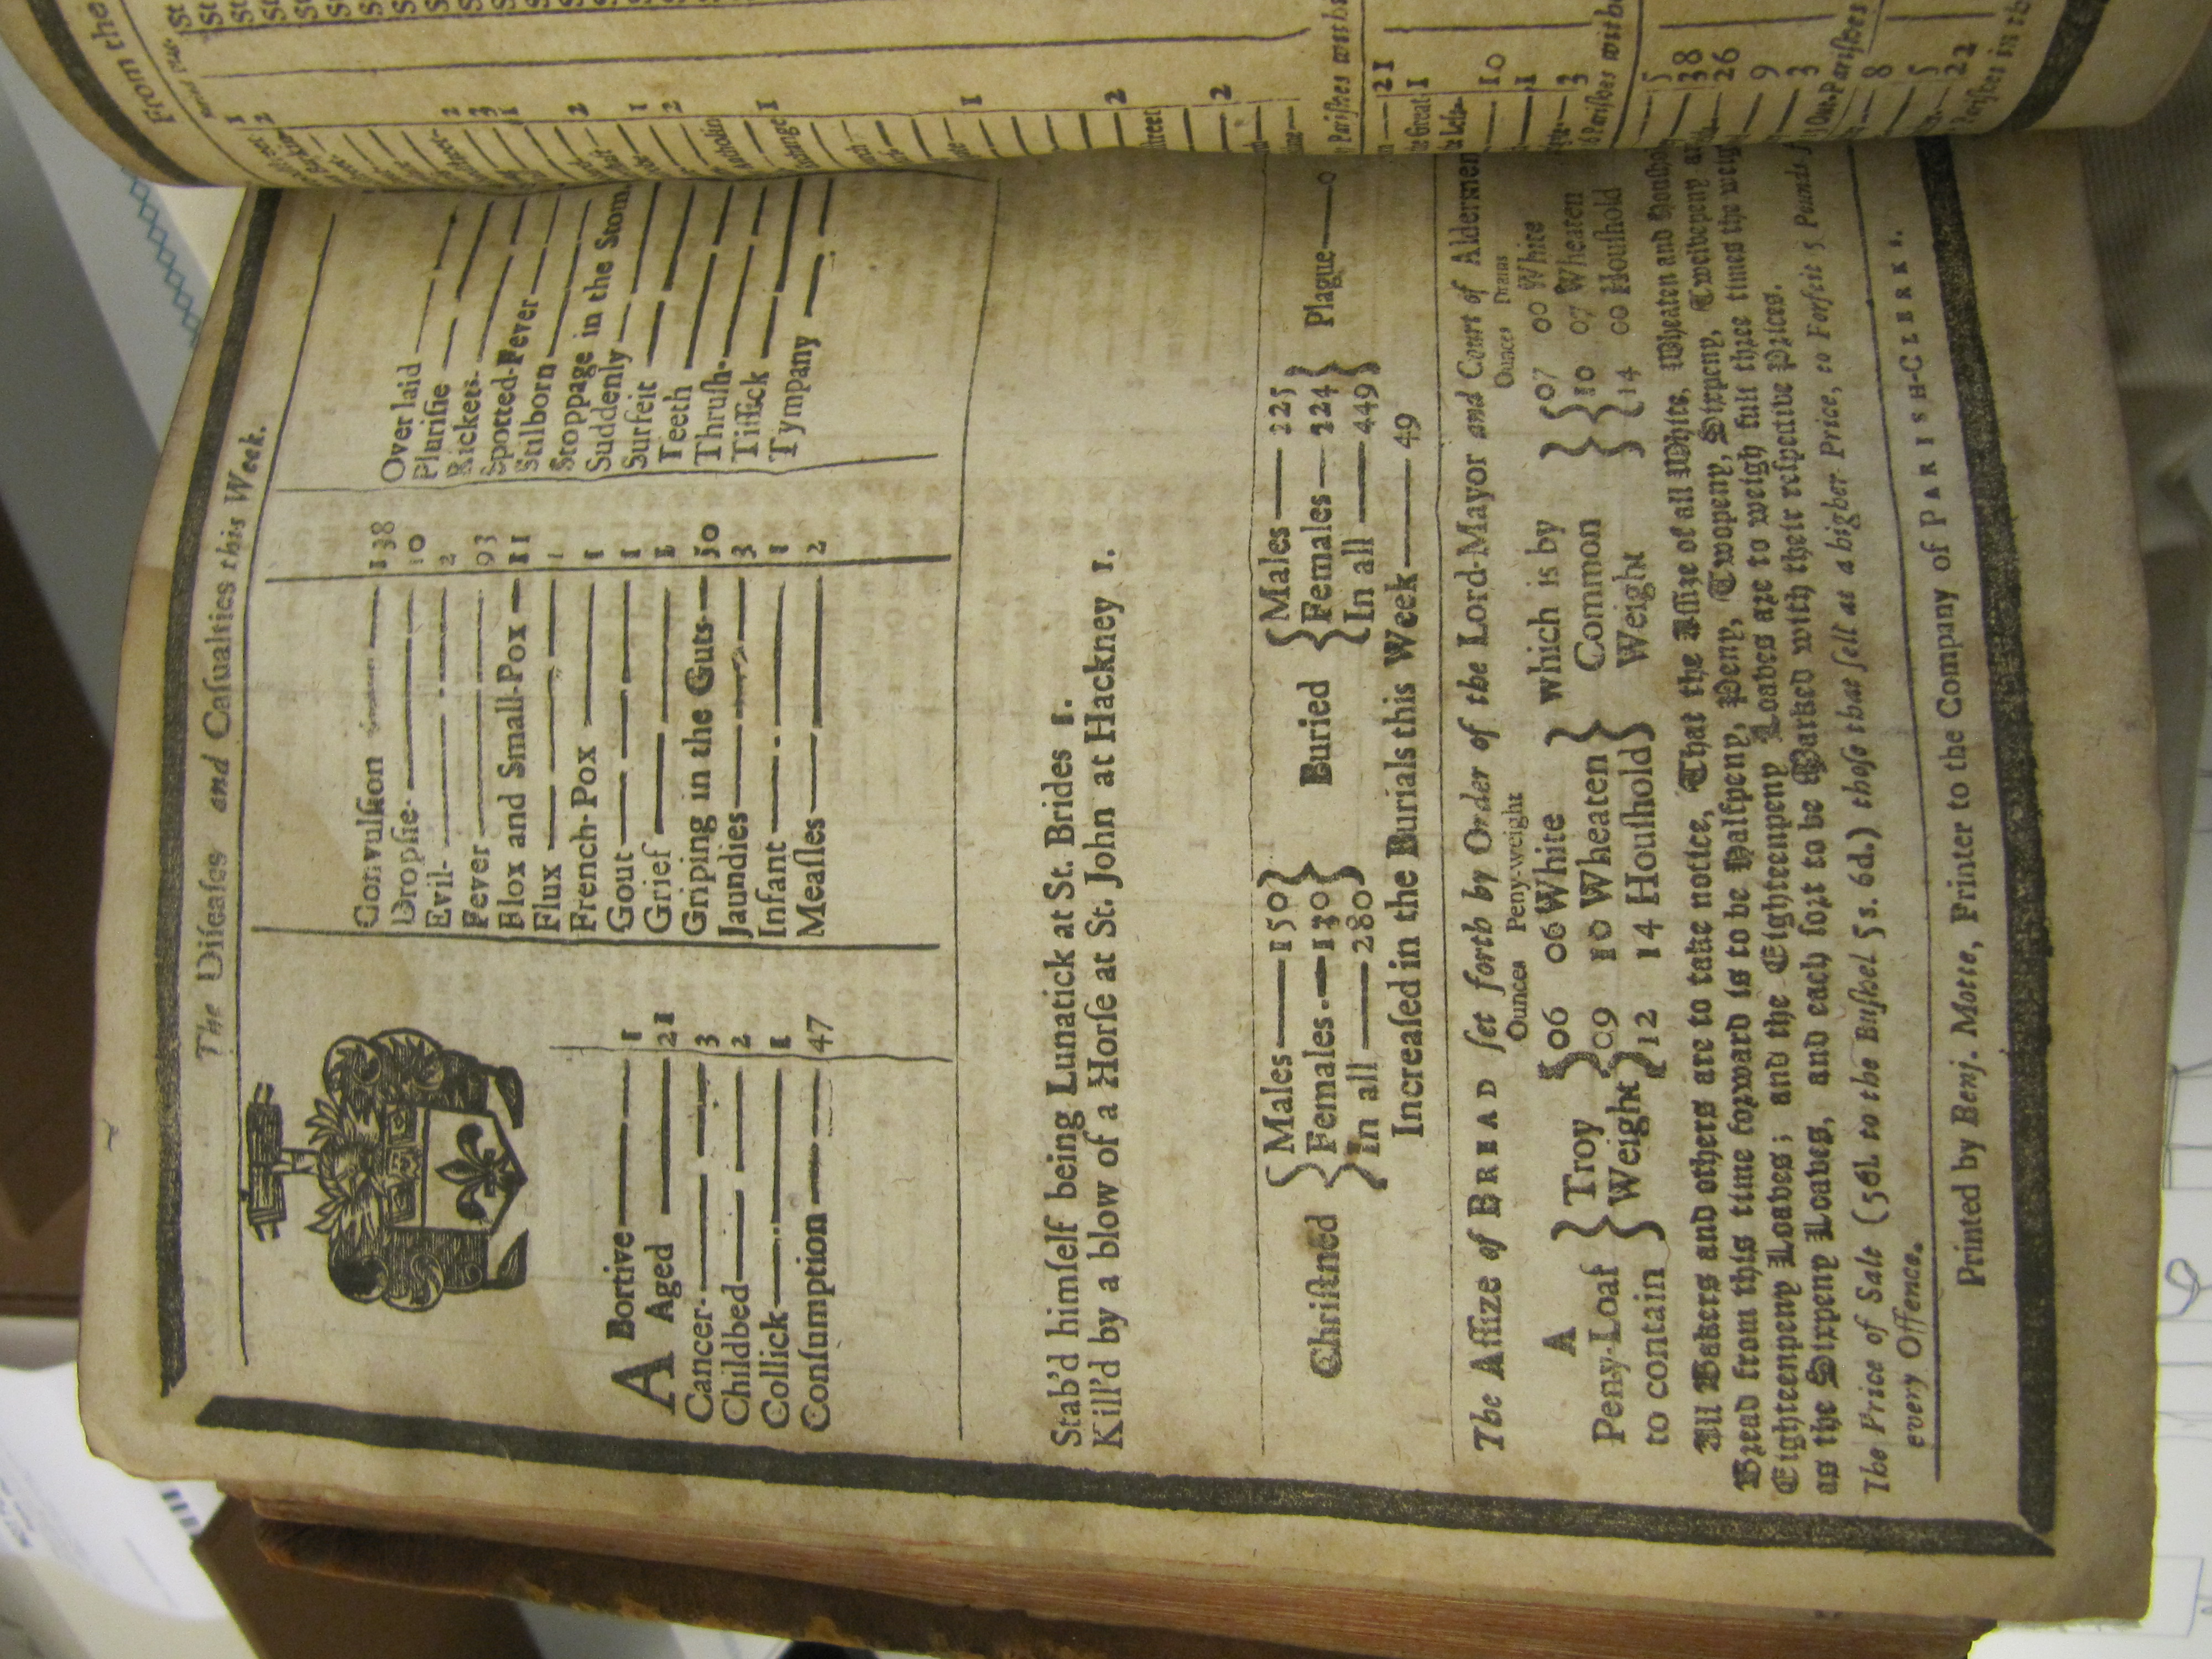 The Diſeaſes and Caſualties this Week.
A Bortive 1
Aged 21
Cancer 3
Childbed 2
Collick 1
Conſumption 47
Convulſion 138
Dropſie 10
Evil 2
Fever 93
Flox and Small-Pox 11
Flux 1
French-Pox 1
Gout 1
Grief 1
Griping in the Guts 50
Jaundies 3
Infant 1
Meaſles 2
Over laid
Pluriſie
Rickets
Spotted-Fever
Stilborn
Stoppage in the Stom
Suddenly
Surfeit
Teeth
Thruſh
Tiſſick
Tympany
Stab'd himſelf being Lunatick at St. Brides 1.
Kill'd by a blow of a Horſe at St. John at Hackney 1.
Chriſtned { Males 150 Females 130 In all 280 } Buried { Males 225 Females 224 In all 449 } Plague 0
Increaſed in the Burials this Week 49
The Aſſize of BREAD ſet forth by Order of the Lord-Mayor and Court of Aldermen
Ounces Peny-weight Ounces Drams
A } Troy { 06 06 White } which is by { 07 00 White
Peny-Loaf } Weight { 09 10 Wheaten } Common { 10 07 Wheaten
to contain 12 14 Houſhold } Weight { 14 00 Houſhold
All Bakers and others are to take notice, That the Aſſize of all White, Wheaten and Houſho
Bread from this time forward is to be Halfpeny, Peny, Twopeny, Sixpeny, Twelvepeny a
Eighteenpeny Loaves; and the Eighteenpeny Loaves are to weigh full three times the weig
as the Sixpeny Loaves, and each ſort to be Marked with their reſpective Prices.
The Price of Salt (56l. to the Buſhel 5s. 6d.) thoſe that ſell at a higher Price, to Forfeit 5 Pounds f
every Offence.
Printed by Benj. Motte, Printer to the Company of PARISH-CLERKS.
From the